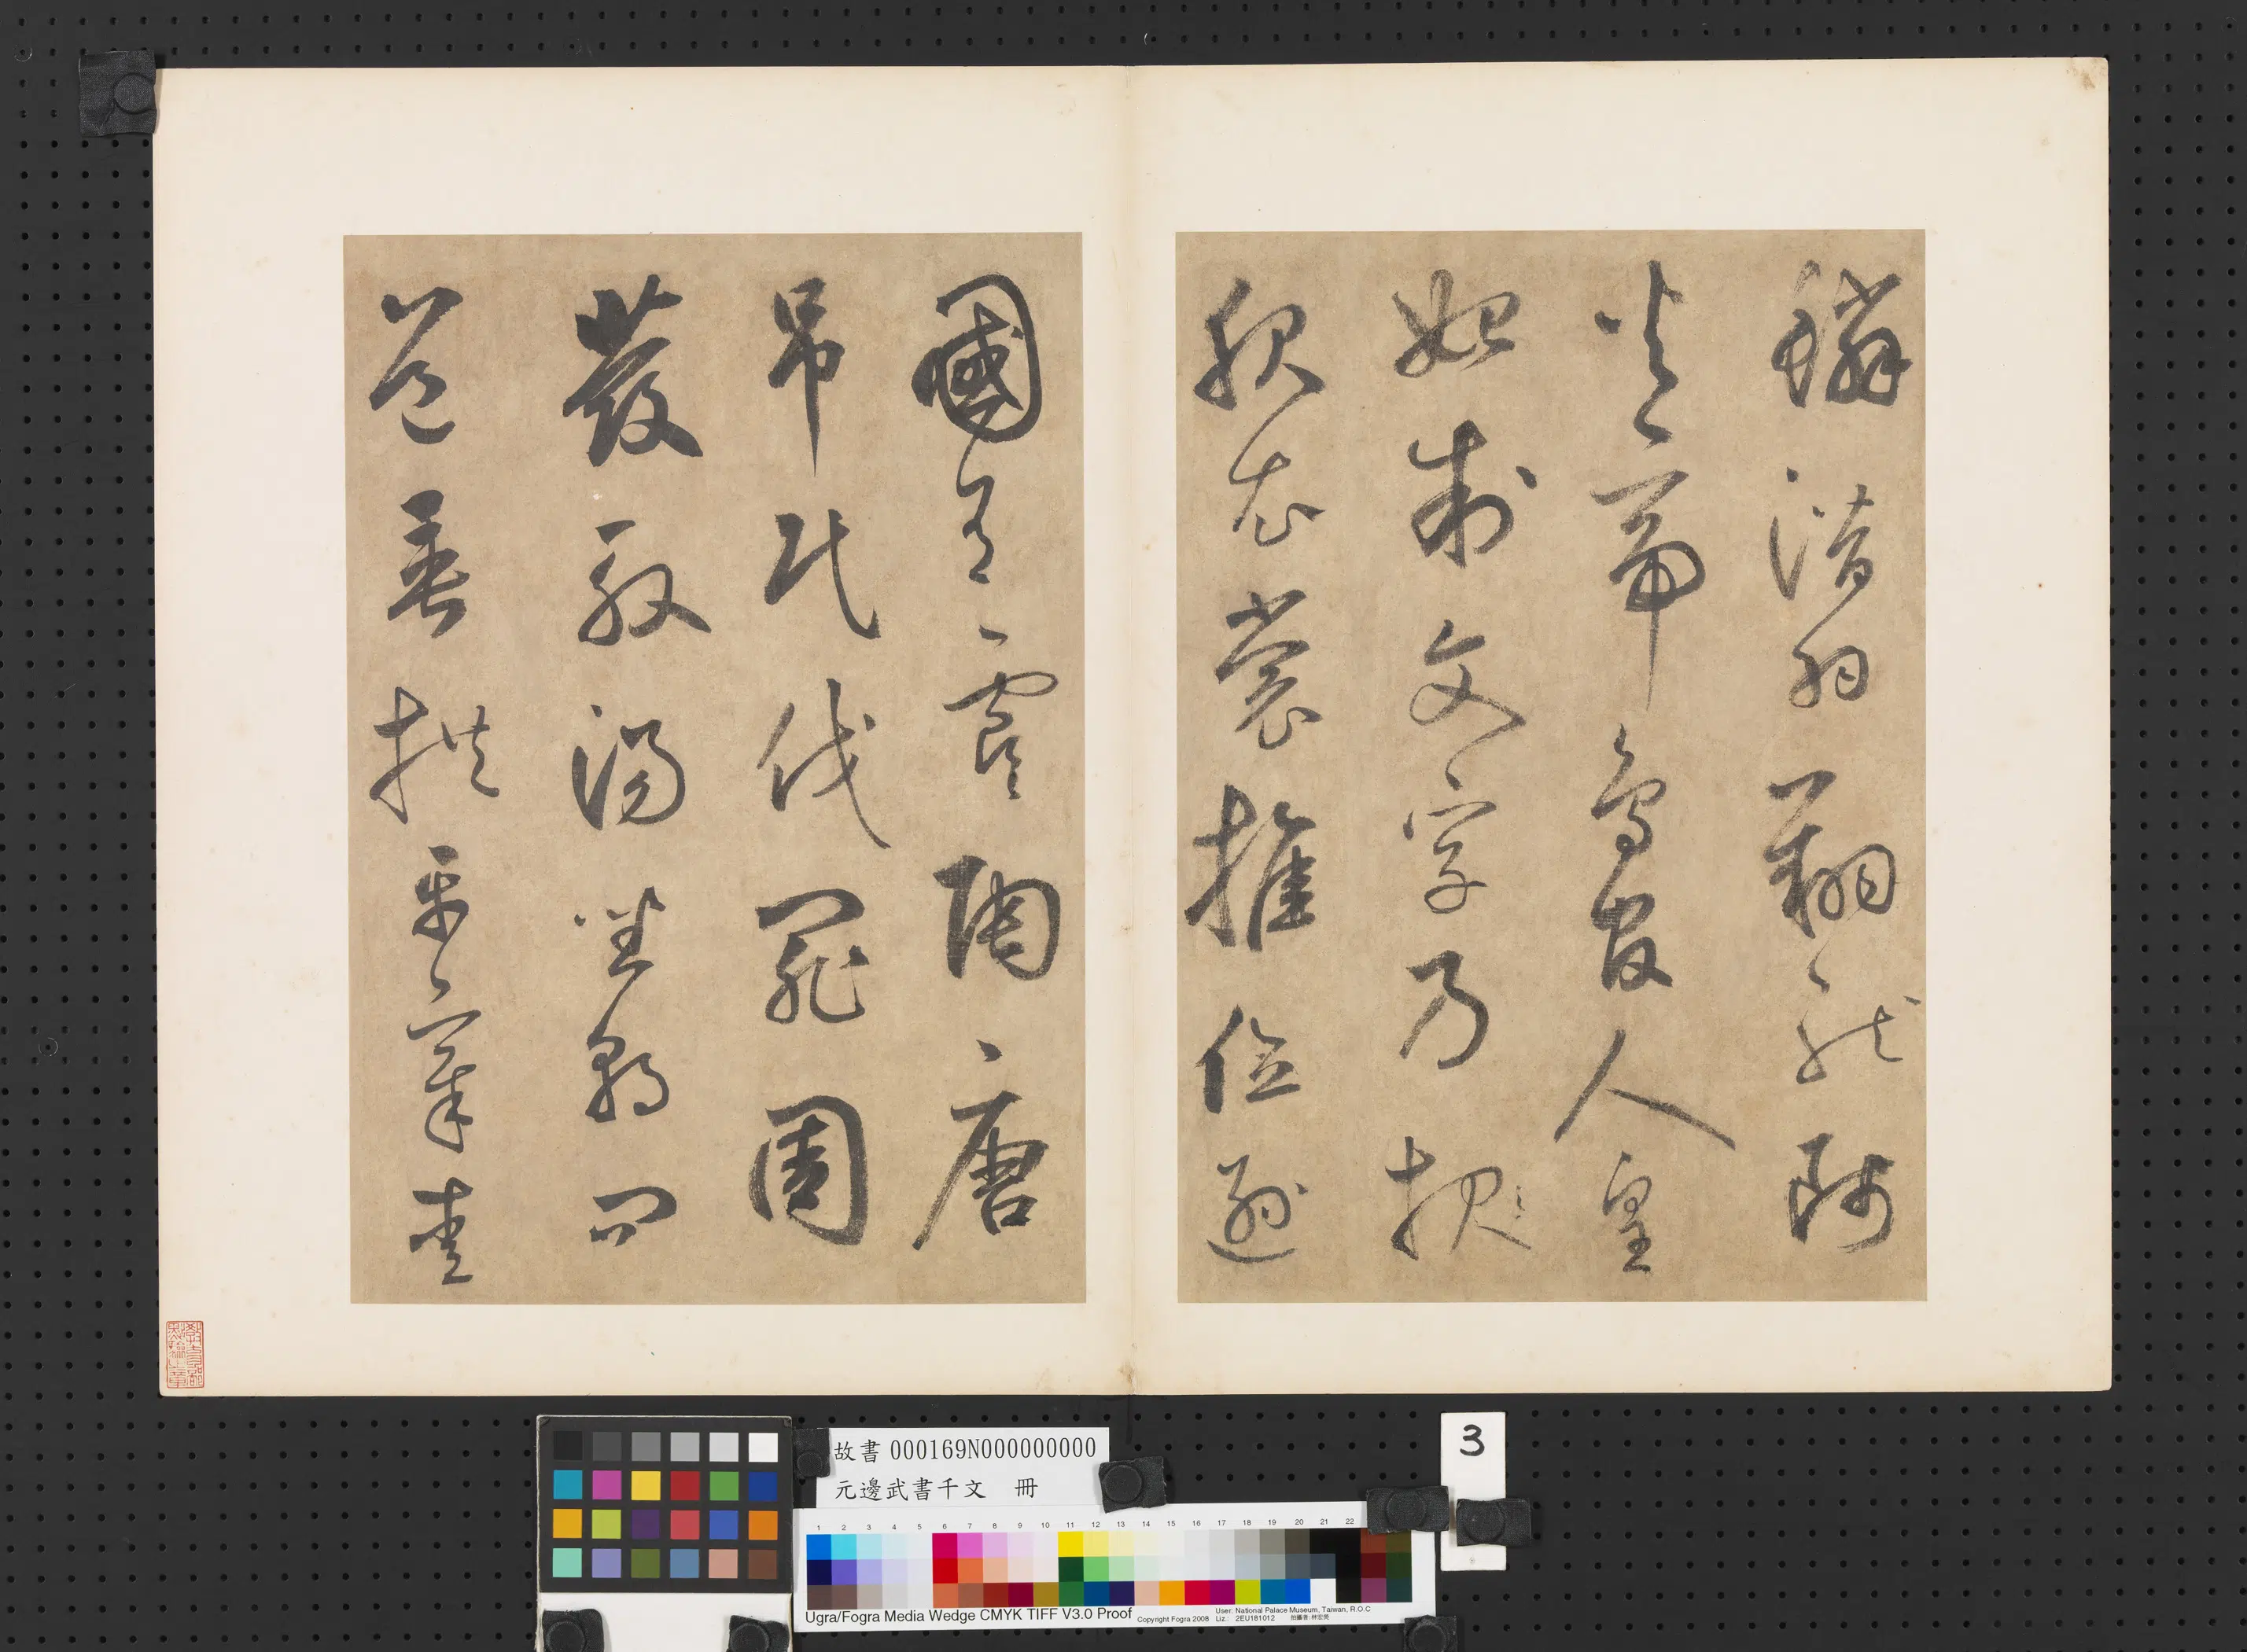 鱗潛羽翔龍師
火帝鳥官人皇
始制文字乃
服衣裳推位遜
國有虞陶唐
吊民伐罪周
發殷湯坐朝問
道垂拱平章愛
教育部點驗之章
故書 000169N000000000
元邊武書千文 冊
3
1 2 3 4 5 6 7 8 9 10 11 12 13 14 15 16 17 18 19 20 21 22
Ugra/Fogra Media Wedge CMYK TIFF V3.0 Proof
Copyright Fogra 2008
User: National Palace Museum, Taiwan, R.O.C
Liz.: 2EU181012